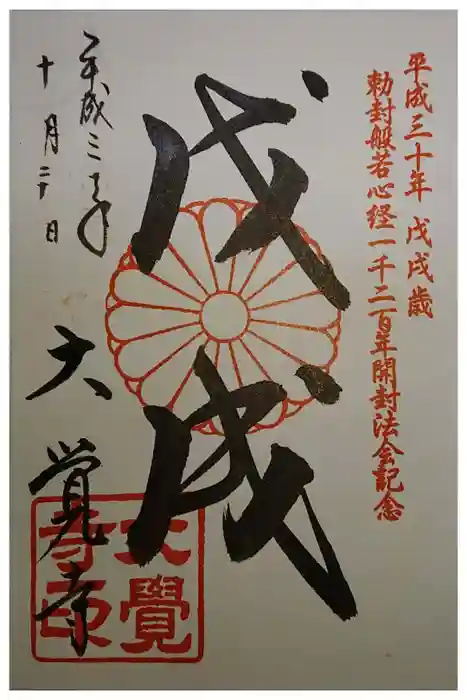 平成三十年 戊戌歳
勅封般若心経一千二百年開封法会記念
戊戌
平成三十年
十月二十日
大覚寺
大覺寺印